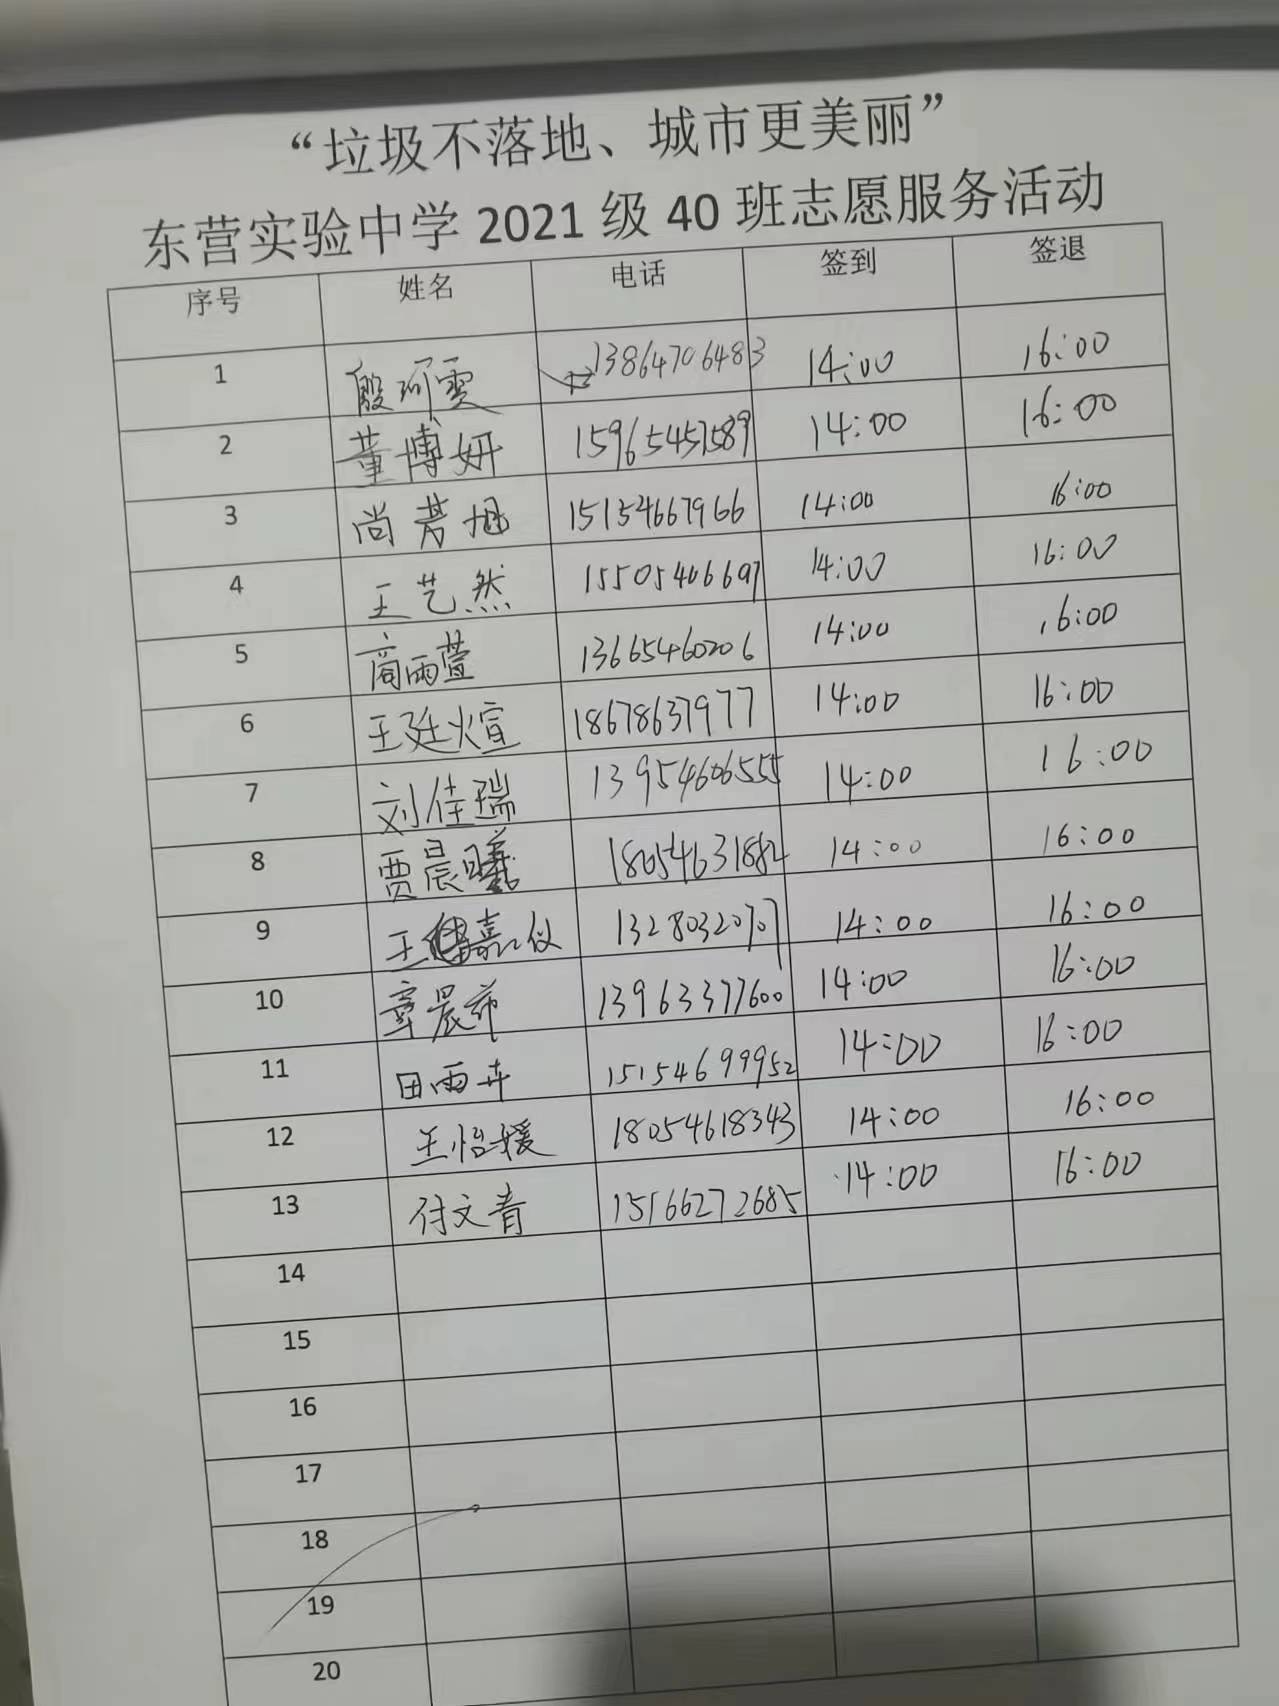 “垃圾不落地、城市更美丽”
东营实验中学 2021 级 40 班志愿服务活动
序号 姓名 电话 签到 签退
1 殷珂雯 13864706483 14:00 16:00
2 董博妍 15965457589 14:00 16:00
3 尚芳旭 15154667966 14:00 16:00
4 王艺然 15505406697 14:00 16:00
5 商雨萱 13665460206 14:00 16:00
6 王廷煊 18678637977 14:00 16:00
7 刘佳瑞 13954606555 14:00 16:00
8 贾晨曦 18054631882 14:00 16:00
9 王嘉仪 13280320707 14:00 16:00
10 晨 13963377600 14:00 16:00
11 田雨卉 15154699952 14:00 16:00
12 王怡媛 18054618343 14:00 16:00
13 付文青 15166272685 14:00 16:00
14
15
16
17
18
19
20